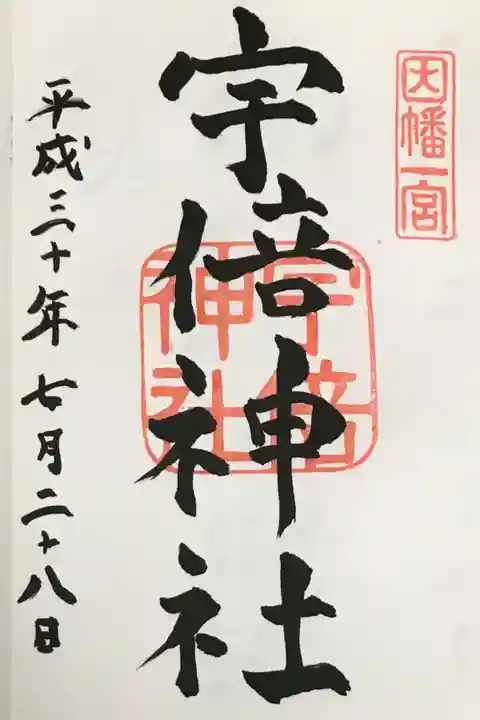 因幡一宮
宇倍神社
宇倍
神社
平成三十年七月二十八日